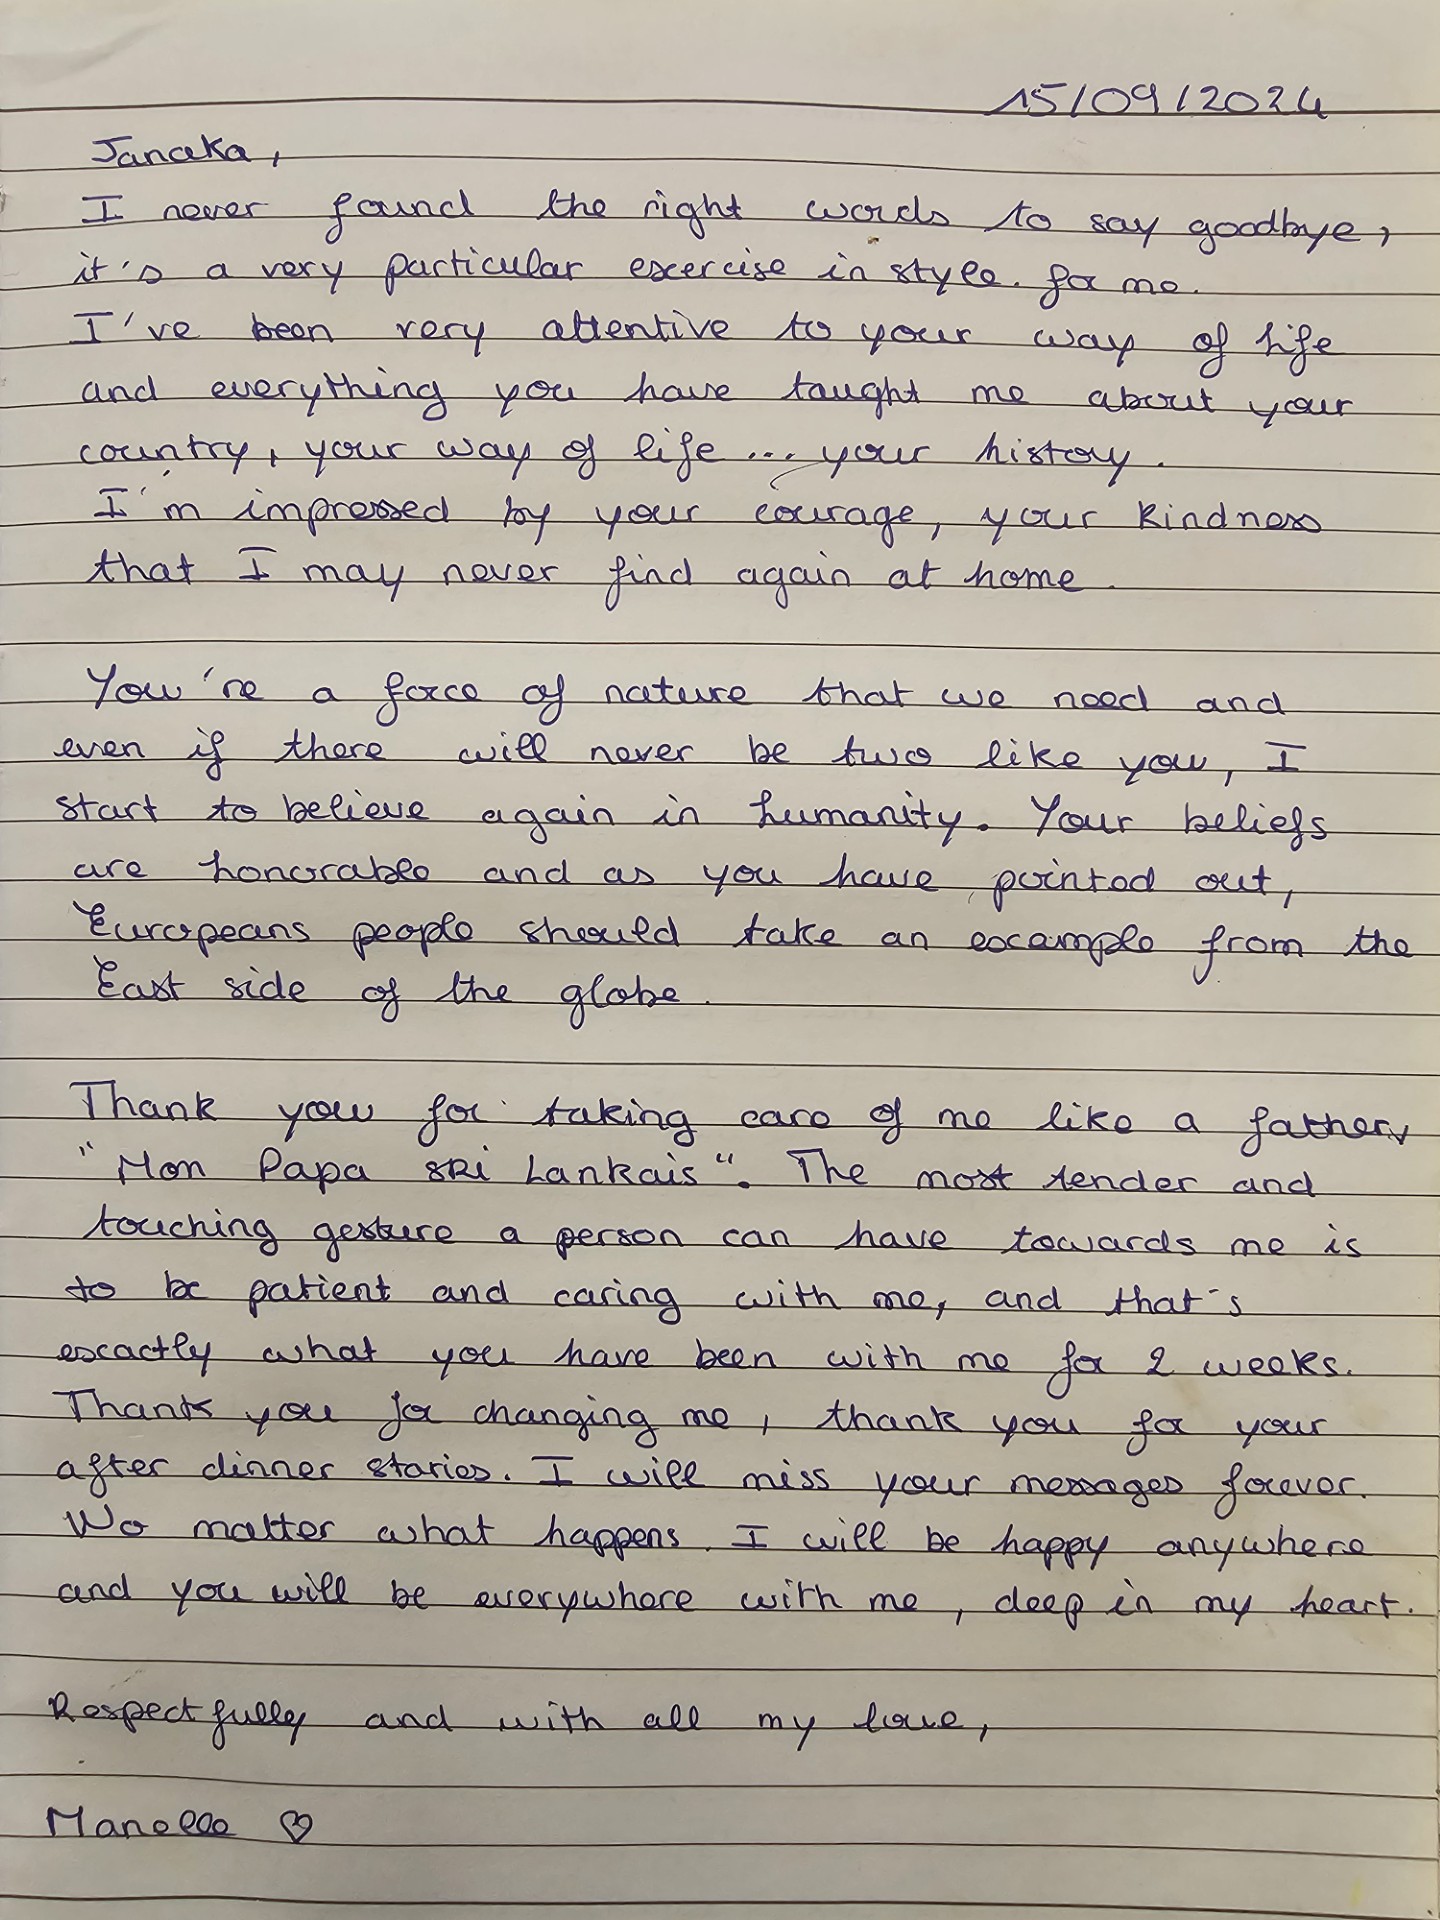 15/09/2024
Janaka,
I never found the right words to say goodbye,
it's a very particular excercise in style. for me.
I've been very attentive to your way of life
and everything you have taught me about your
country, your way of life ... your history.
I'm impressed by your courage, your kindness
that I may never find again at home.
You're a force of nature that we need and
even if there will never be two like you, I
start to believe again in humanity. Your beliefs
are honorable and as you have pointed out,
Europeans people should take an example from the
East side of the globe.
Thank you for taking care of me like a father,
"Mon Papa SRi Lankais". The most tender and
touching gesture a person can have towards me is
to be patient and caring with me, and that's
exactly what you have been with me for 2 weeks.
Thank you for changing me, thank you for your
after dinner stories. I will miss your messages forever.
No matter what happens. I will be happy anywhere
and you will be everywhere with me, deep in my heart.
Respectfully and with all my love,
Manelle ♡